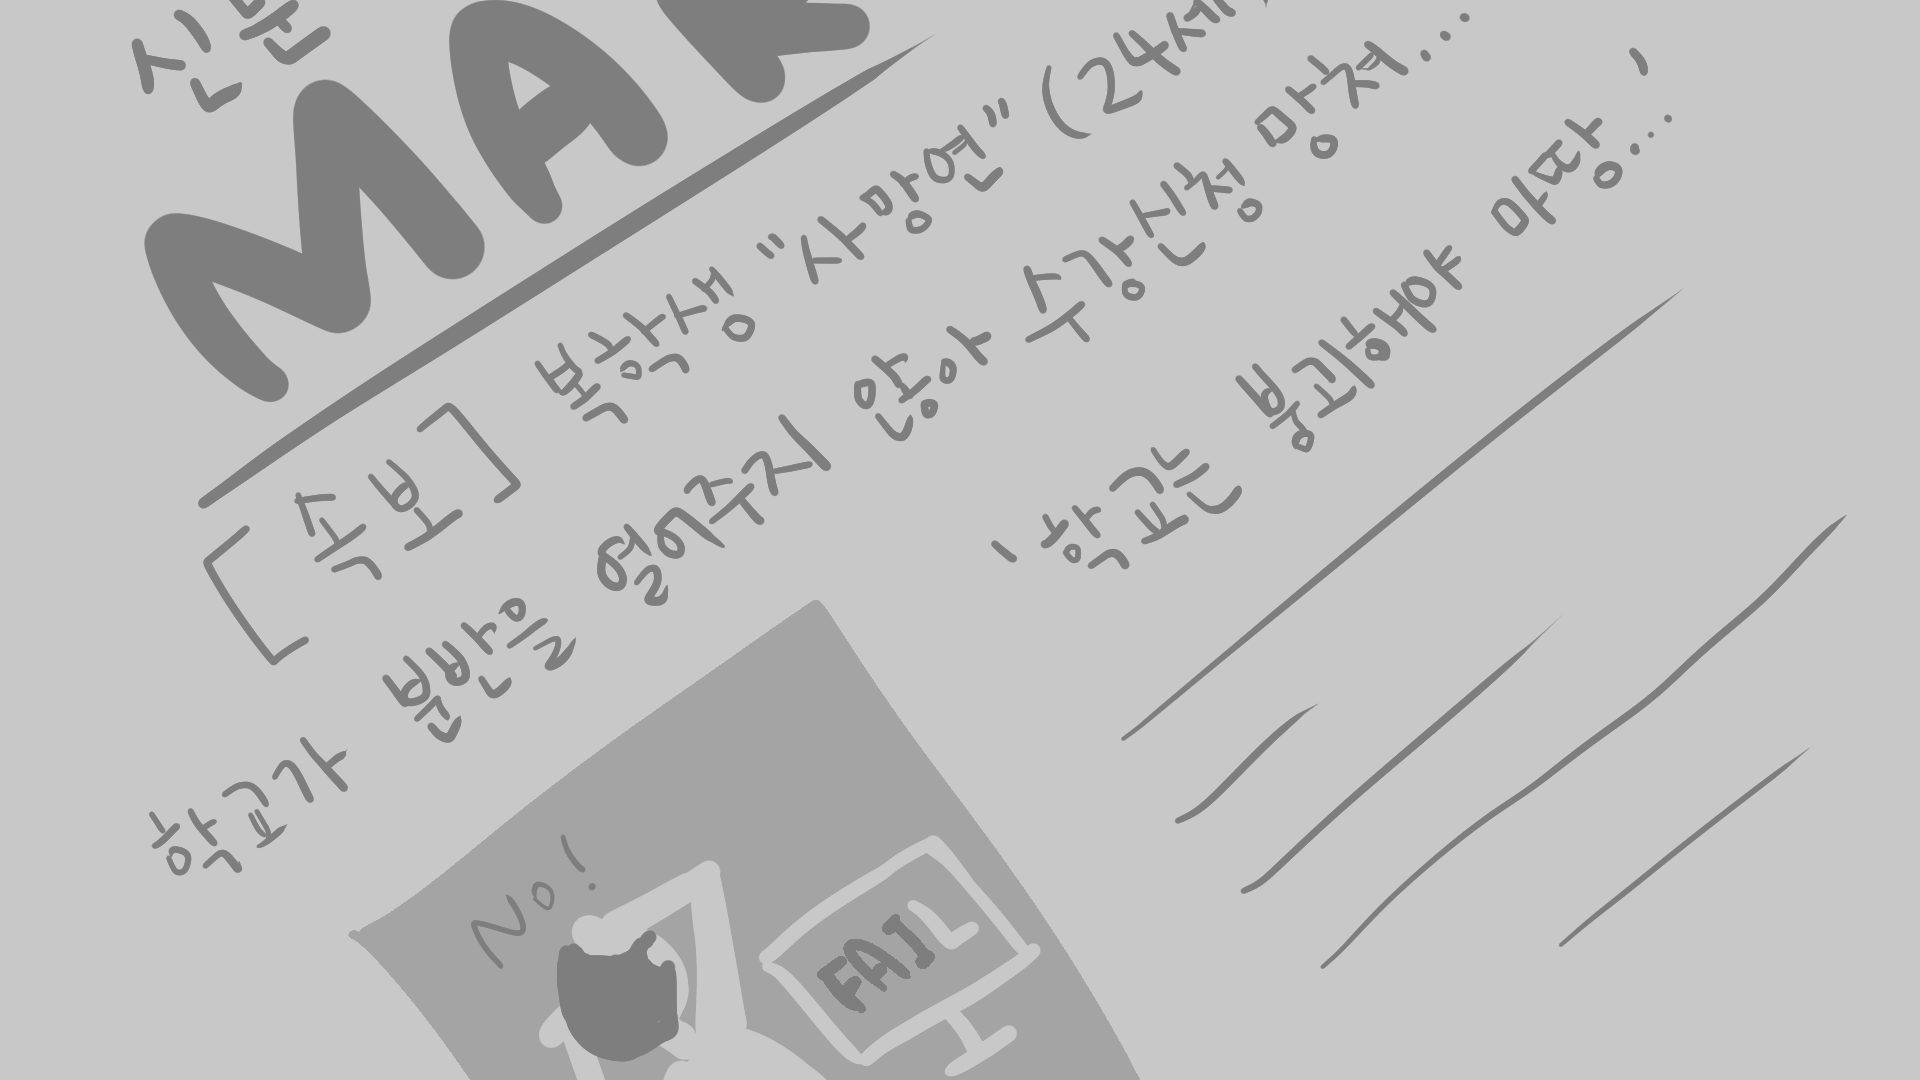 신문
MAR
[속보] 복학생 "사망연" (24세)
학교가 분반을 열어주지 않아 수강신청 망쳐...
'학교는 붕괴해야 마땅...'
No!
FAIL